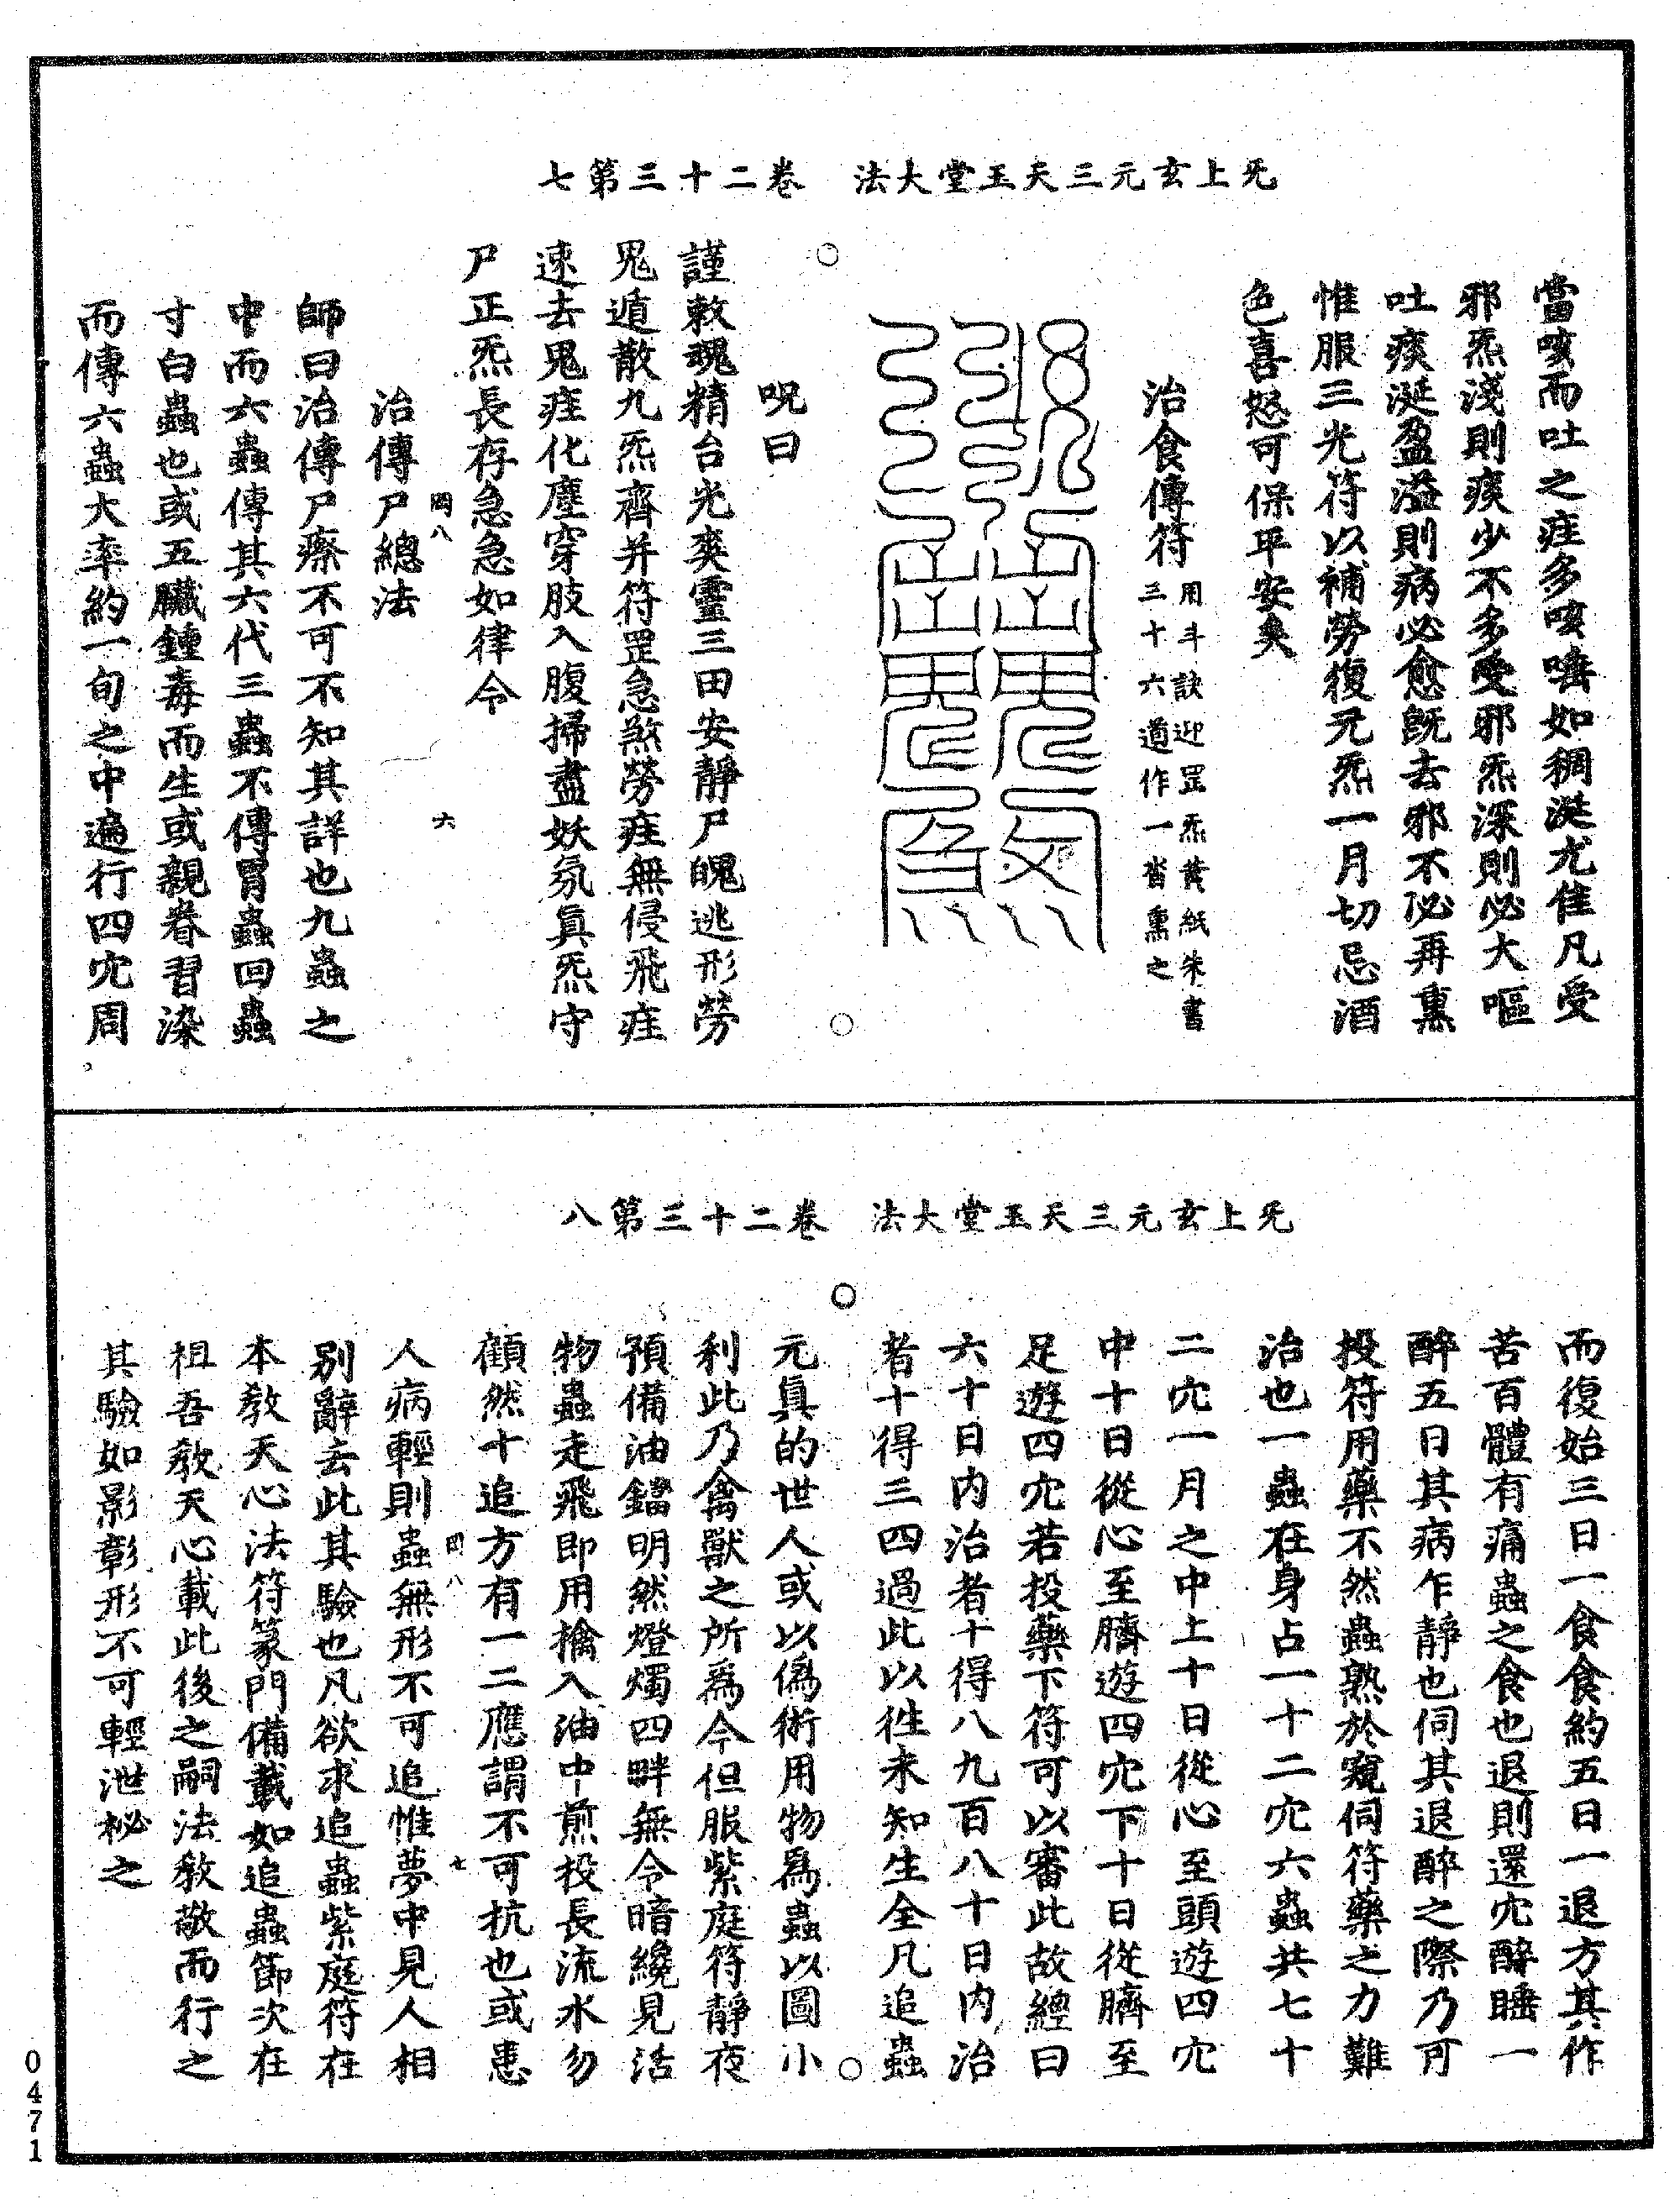 无上玄元三天玉堂大法　卷二十三第七
當咳而吐之疰多咳嗽如稠涎尤隹凡受
邪炁淺則痰少不多受邪炁深則必大嘔
吐痰涎盈溢則病必愈既去邪不必再熏
惟服三光符以補勞復元炁一月切忌酒
色喜怒可保平安矣
治食傳符
用斗訣迎罡炁黃紙朱書
三十六道作一沓熏之
呪曰
謹敕魂精台光爽靈三田安靜尸魄逃形勞
鬼遁散九炁齊并符罡急煞勞疰無侵飛疰
速去鬼疰化塵穿肢入腹掃盡妖氛真炁守
尸正炁長存急急如律令
治傳尸總法
罔八
六
師曰治傳尸瘵不可不知其詳也九蟲之
中而六蟲傳其六代三蟲不傳胃蟲回蟲
寸白蟲也或五臟鍾毒而生或親眷習染
而傳六蟲大率約一旬之中遍行四穴周
无上玄元三天玉堂大法　卷二十三第八
而復始三日一食食約五日一退方其作
苦百體有痛蟲之食也退則還穴醉睡一
醉五日其病乍靜也伺其退醉之際乃可
投符用藥不然蟲熟於窺伺符藥之力難
治也一蟲在身占一十二穴六蟲共七十
二穴一月之中上十日從心至頭遊四穴
中十日從心至臍遊四穴下十日從臍至
足遊四穴若投藥下符可以審此故經曰
六十日內治者十得八九百八十日內治
者十得三四過此以往未知生全凡追蟲
元真的世人或以偽術用物為蟲以圖小
利此乃禽獸之所為今但服紫庭符靜夜
預備油鐺明然燈燭四畔無令暗纔見活
物蟲走飛即用擒入油中煎投長流水勿
顧然十追方有一二應謂不可抗也或患
罔八
七
人病輕則蟲無形不可追惟夢中見人相
別辭去此其驗也凡欲求追蟲紫庭符在
本教天心法符篆門備載如追蟲節次在
祖吾教天心載此後之嗣法教敬而行之
其驗如影彰形不可輕泄秘之
0471